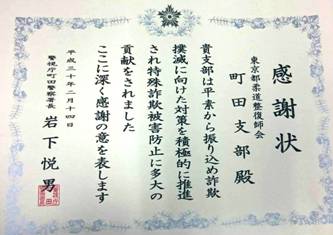 感謝状
東京都柔道整復師会
町田支部殿
貴支部は平素から振り込め詐欺
撲滅に向けた対策を積極的に推進
され特殊詐欺被害防止に多大の
貢献をされました
ここに深く感謝の意を表します
平成三十年二月十四日
警視庁町田警察署長
岩下悦男